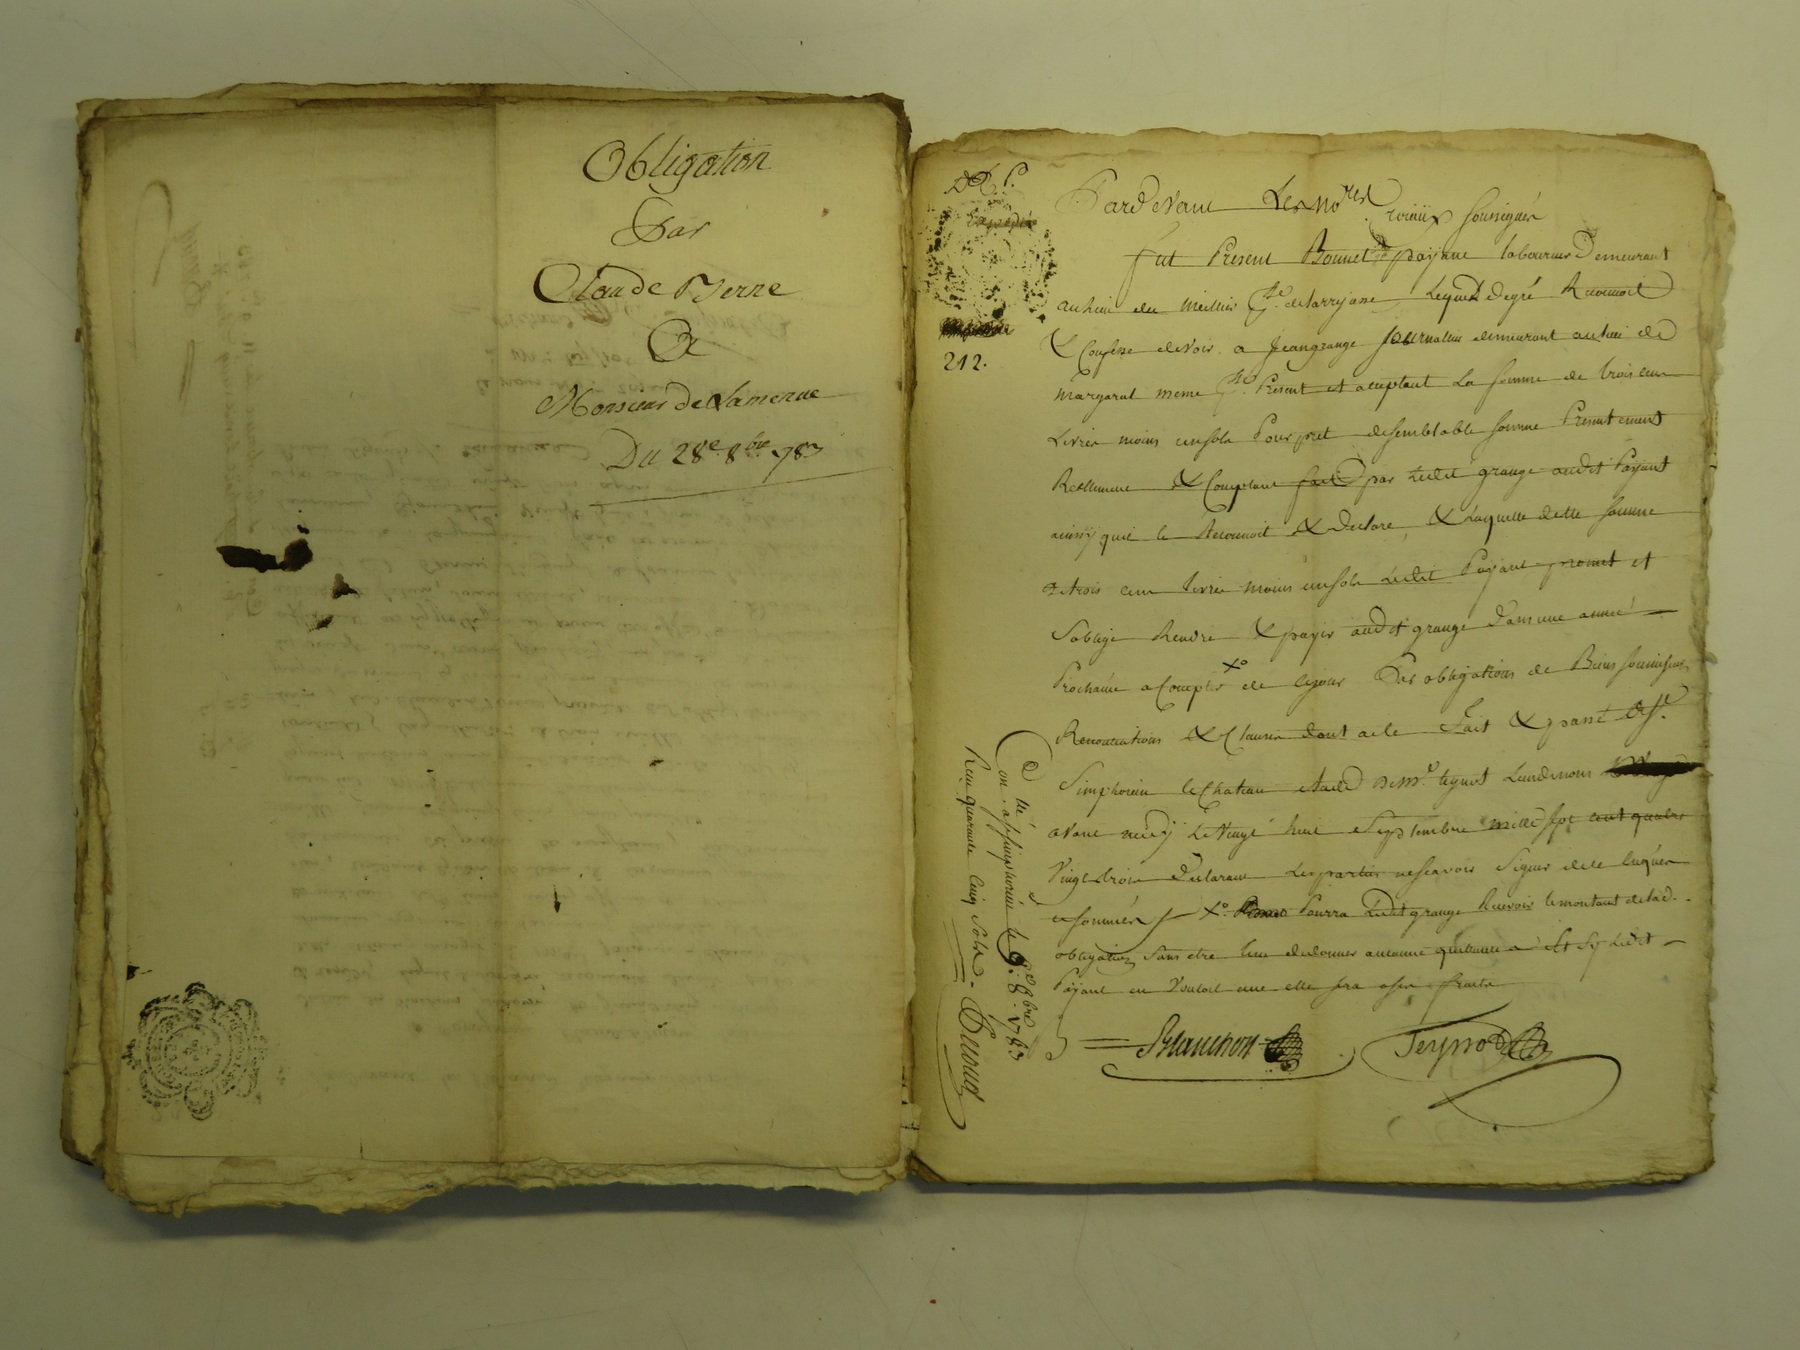 Obligation
Par
Claude Berne
A
Monsieur de Lamerue
Du 28e 8bre 783
Expédié
212.
Pardevant Les no.res roiaux soussignés
fut Present Bonnet payant laboureur Demeurant
au lieu du p.sse de larryjasse Lequel degré Reconnoit
& Confesse devoir a Jean grange Journalier demeurant au lieu de
margarat meme p.sse Present et acceptant La somme de trois cent
Livres moins un sols Pour pret de semblable somme Presentement
Reellement & Comptant fait par Ledit grange audit Payant
ainsy quil le Reconnoit & declare, & Laquelle dette somme
de trois cent livres moins un sols Ledit Payant promet et
soblige Rendre & payer audit grange Dans une année
Prochaine a Compter x° de ce jour Par obligations de Biens soumissions
Renonciations & Clauses dont acte fait & passé a St.
Simphorien le Chateau etude de Me. teynot Lun de nous
avant midy Le Vingt huit Septembre mille sept cent quatre
Vingt trois declarant Les parties ne scavoir signer de ce enquises
et sommées / x° Pourra Ledit grange Recevoir le montant de lad.
obligation sans etre tenu de donner aucune quittance a Et sy Ledit
Payant en Vouloit une elle sera a ses fraits
Blanchon
Teynod
Con.lé a s.t simphorien le 9.e 8.bre 1783
Reçu quarante cinq Sols